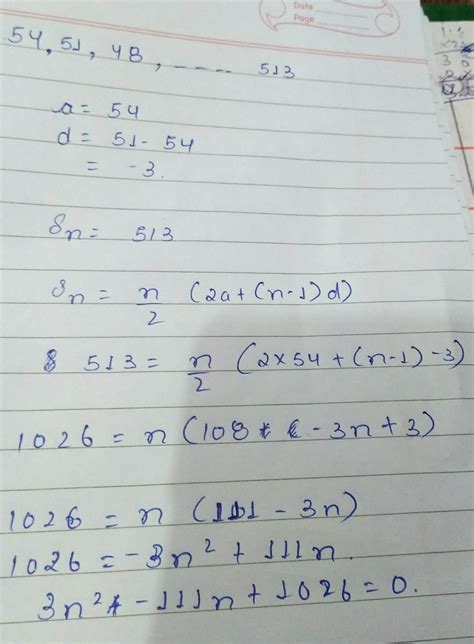 Date
Page
54, 51, 48, ---- 513
a = 54
d = 51 - 54
= -3.
Sn = 513
Sn = n/2 (2a + (n-1) d)
513 = n/2 (2×54 + (n-1) -3)
1026 = n (108 - 3n + 3)
1026 = n (111 - 3n)
1026 = -3n² + 111n.
3n² - 111n + 1026 = 0.